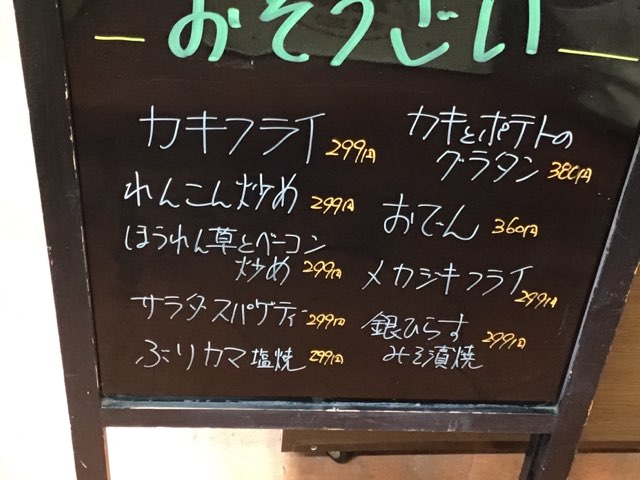 おそうざい
カキフライ 299円
れんこん炒め 299円
ほうれん草とベーコン
炒め 299円
サラダスパゲティ 299円
ぶりカマ塩焼 299円
カキとポテトの
グラタン 380円
おでん 360円
メカジキフライ
299円
銀ひらす
みそ漬焼 299円